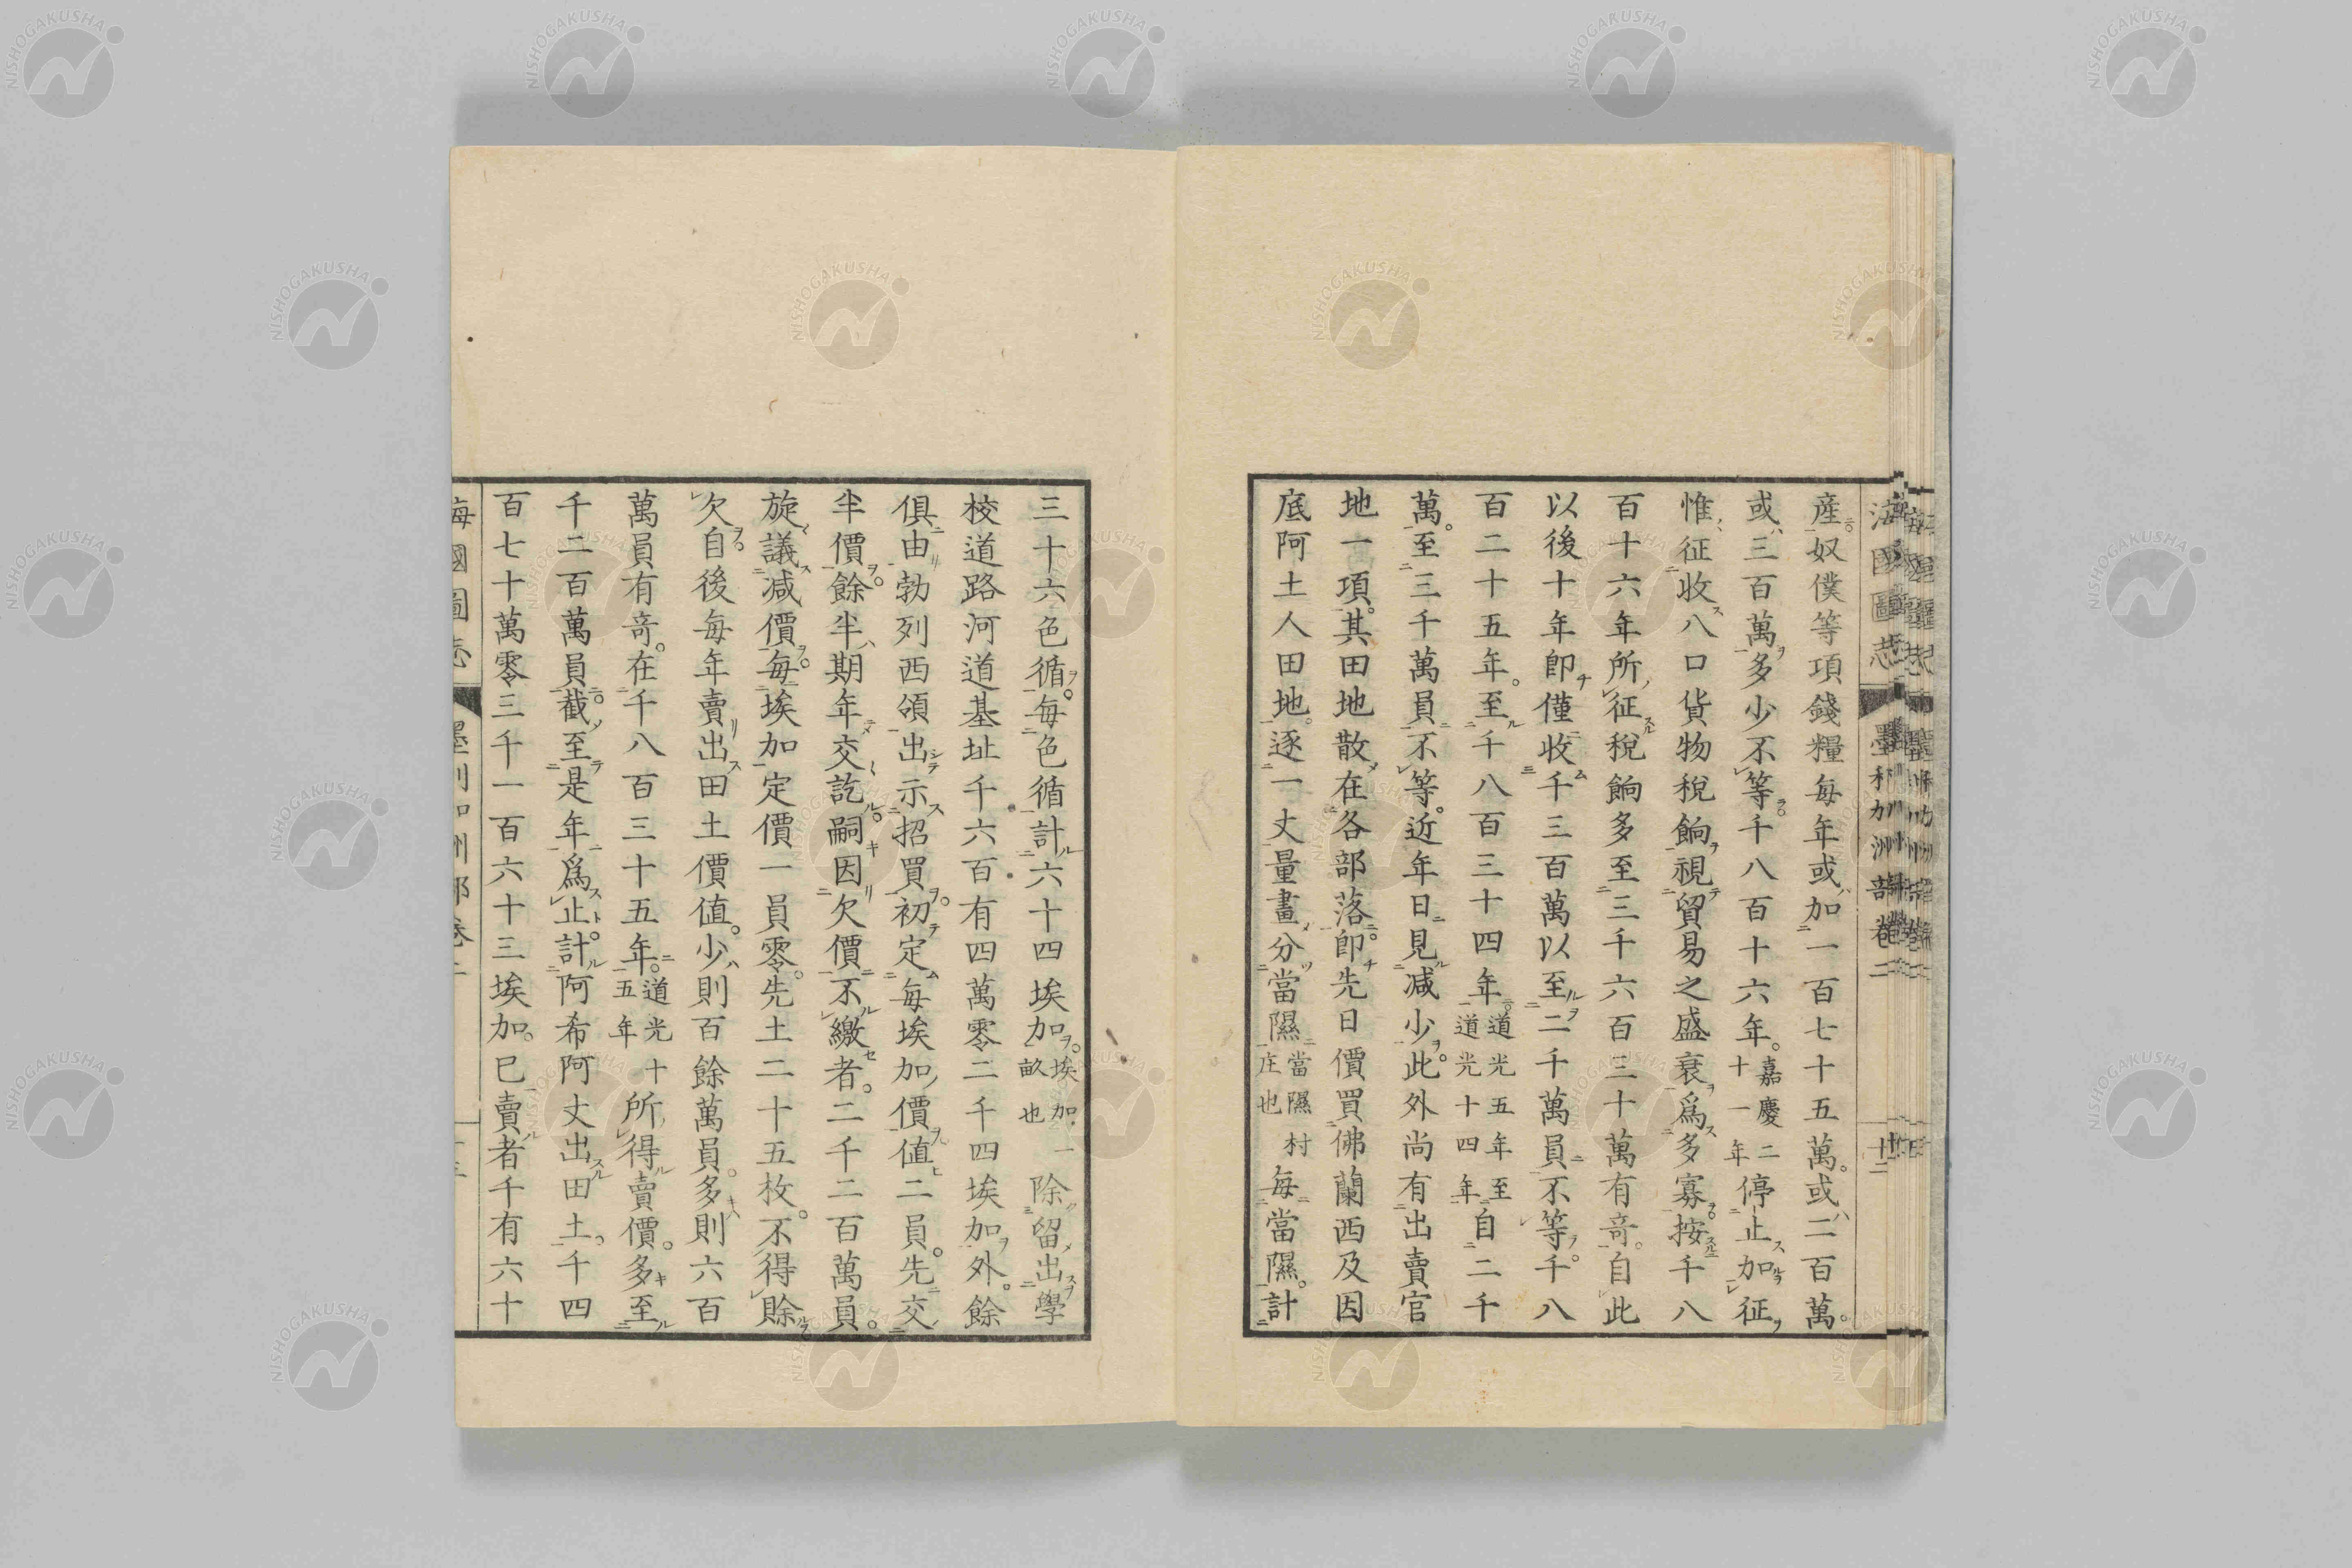 産奴僕等項錢糧每年或加一百七十五萬。或二百萬。
或三百萬多少不等。千八百十六年。嘉慶二十一年停止加征
惟征收入口貨物稅餉視貿易之盛衰爲多寡。按千八
百十六年所征稅餉多至三千六百三十萬有奇。自此
以後十年卽僅收千三百萬以至二千萬員不等。千八
百二十五年。至千八百三十四年。道光五年至道光十四年自二千
萬。至三千萬員不等。近年日見減少。此外尚有出賣官
地一項。其田地散在各部落。卽先日價買佛蘭西及因
底阿土人田地。逐一丈量畫分當隰當隰村庄也每當隰。計
三十六色循。每色循計六十四埃加。埃加一畝也除留出學
校道路河道基址千六百有四萬零二千四埃加外。餘
俱由勃列西領出示招買。初定每埃加價值二員。先交
半價。餘半期年交訖。嗣因欠價不繳者。二千二百萬員。
旋議減價。每埃加定價一員零。先土二十五枚。不得賒
欠。自後每年賣出田土價值。少則百餘萬員。多則六百
萬員有奇。在千八百三十五年。道光十五年所得賣價。多至
千二百萬員。截至是年爲止。計阿希阿丈出田土。千四
百七十萬零三千一百六十三埃加。已賣者千有六十
海國圖志
墨利加洲部卷二
十二
NISHOGAKUSHA